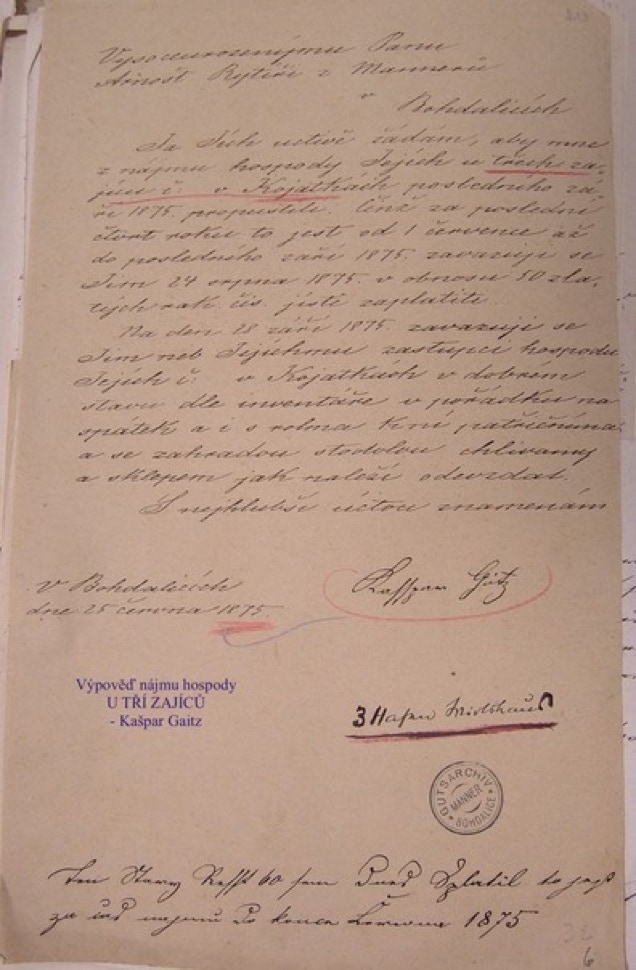 Vysoceurozenýmu Panu
Arnošt Rytíři z Mannerů
v Bohdalicích
Ja Jich uctivě žádám, aby mne
z nájmu hospody Jejich u třech za-
jíců č: v Kojátkách posledního zá-
ří 1875. propustili. Činž za poslední
čtvrt roku to jest od 1 července až
do posledního září 1875. zavazuji se
Jim 24 srpna 1875. v obnosu 50 zla-
tých rak. čís. jistě zaplatiti.
Na den 28 září 1875. zavazuji se
Jim neb Jejichmu zastupci hospodu
Jejich č: v Kojátkach v dobrém
stavu dle inventáře v pořádku na
spátek a i s rolma k ní patřičnýma
a se zahradou stodolou chlivamy
a sklepem jak naleží odevzdat.
S nejhlubší úctou znamenám
V Bohdalicích
dne 25 června 1875.
Kasspar Götz
Výpověď nájmu hospody
U TŘÍ ZAJÍCŮ
- Kašpar Gaitz
3 Hasen Wirtshaus
GUTSARCHIV
MANNER
BOHDALICE
Ten Stary Resst 60 sem Splatil to jest
za najmu Do konce Června 1875
6